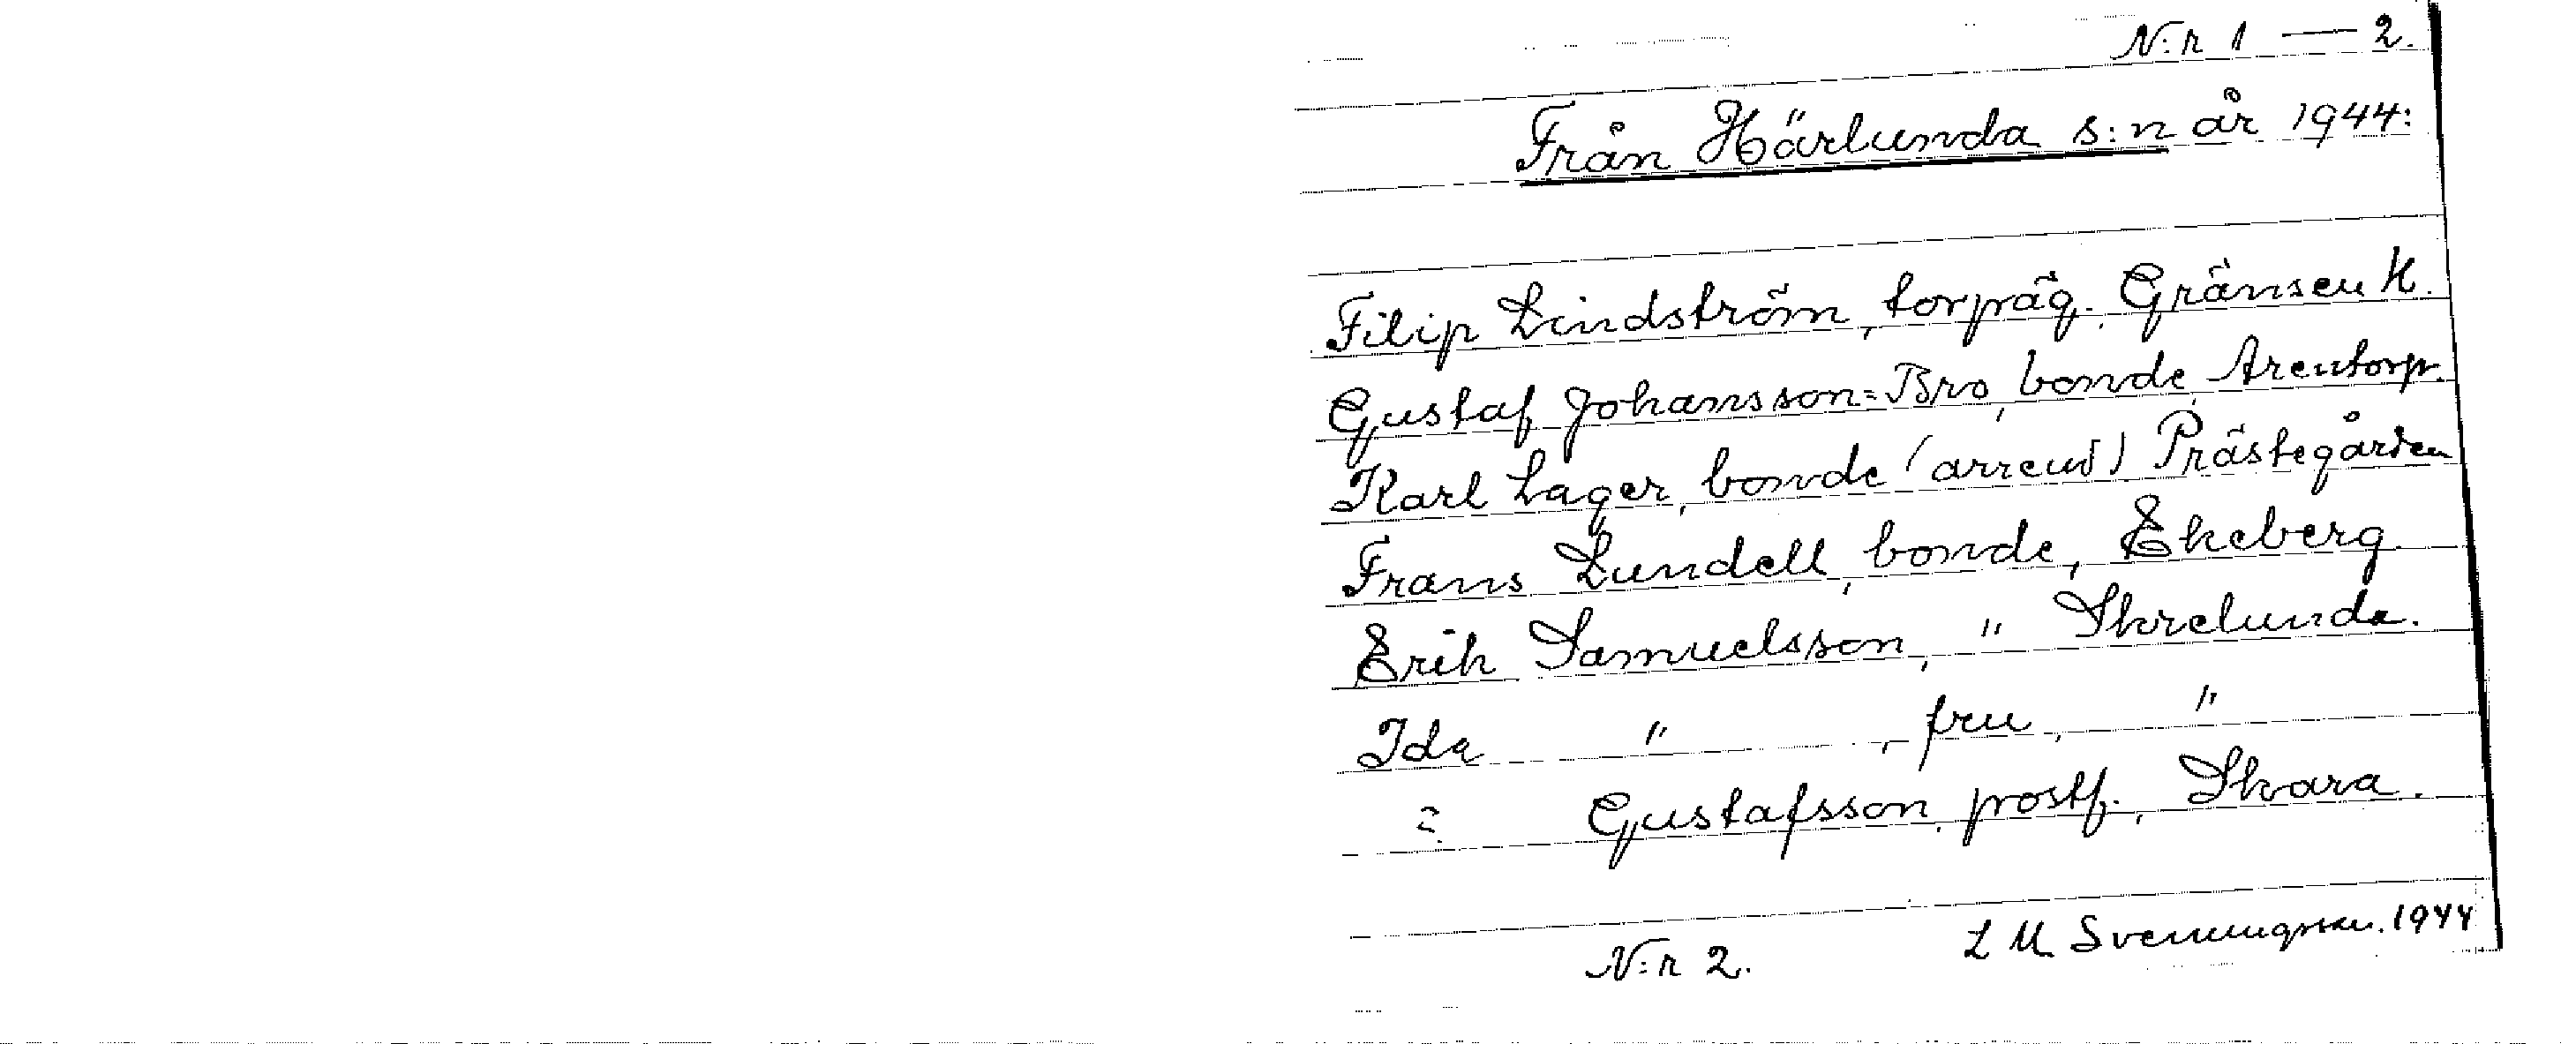 N:r 1 — 2.
Från Härlunda s:n år 1944:
Filip Lindström, torpäg. Gränsen H.
Gustaf Johansson=Bro, bonde, Arentorp.
Karl Lager, bonde (arrend) Prästegården
Frans Lundell, bonde, Ekeberg
Erik Samuelsson, " Skrelunda.
Ida " , fru, "
= Gustafsson, postf., Skara.
N:r 2. L M Svenungsson. 1944